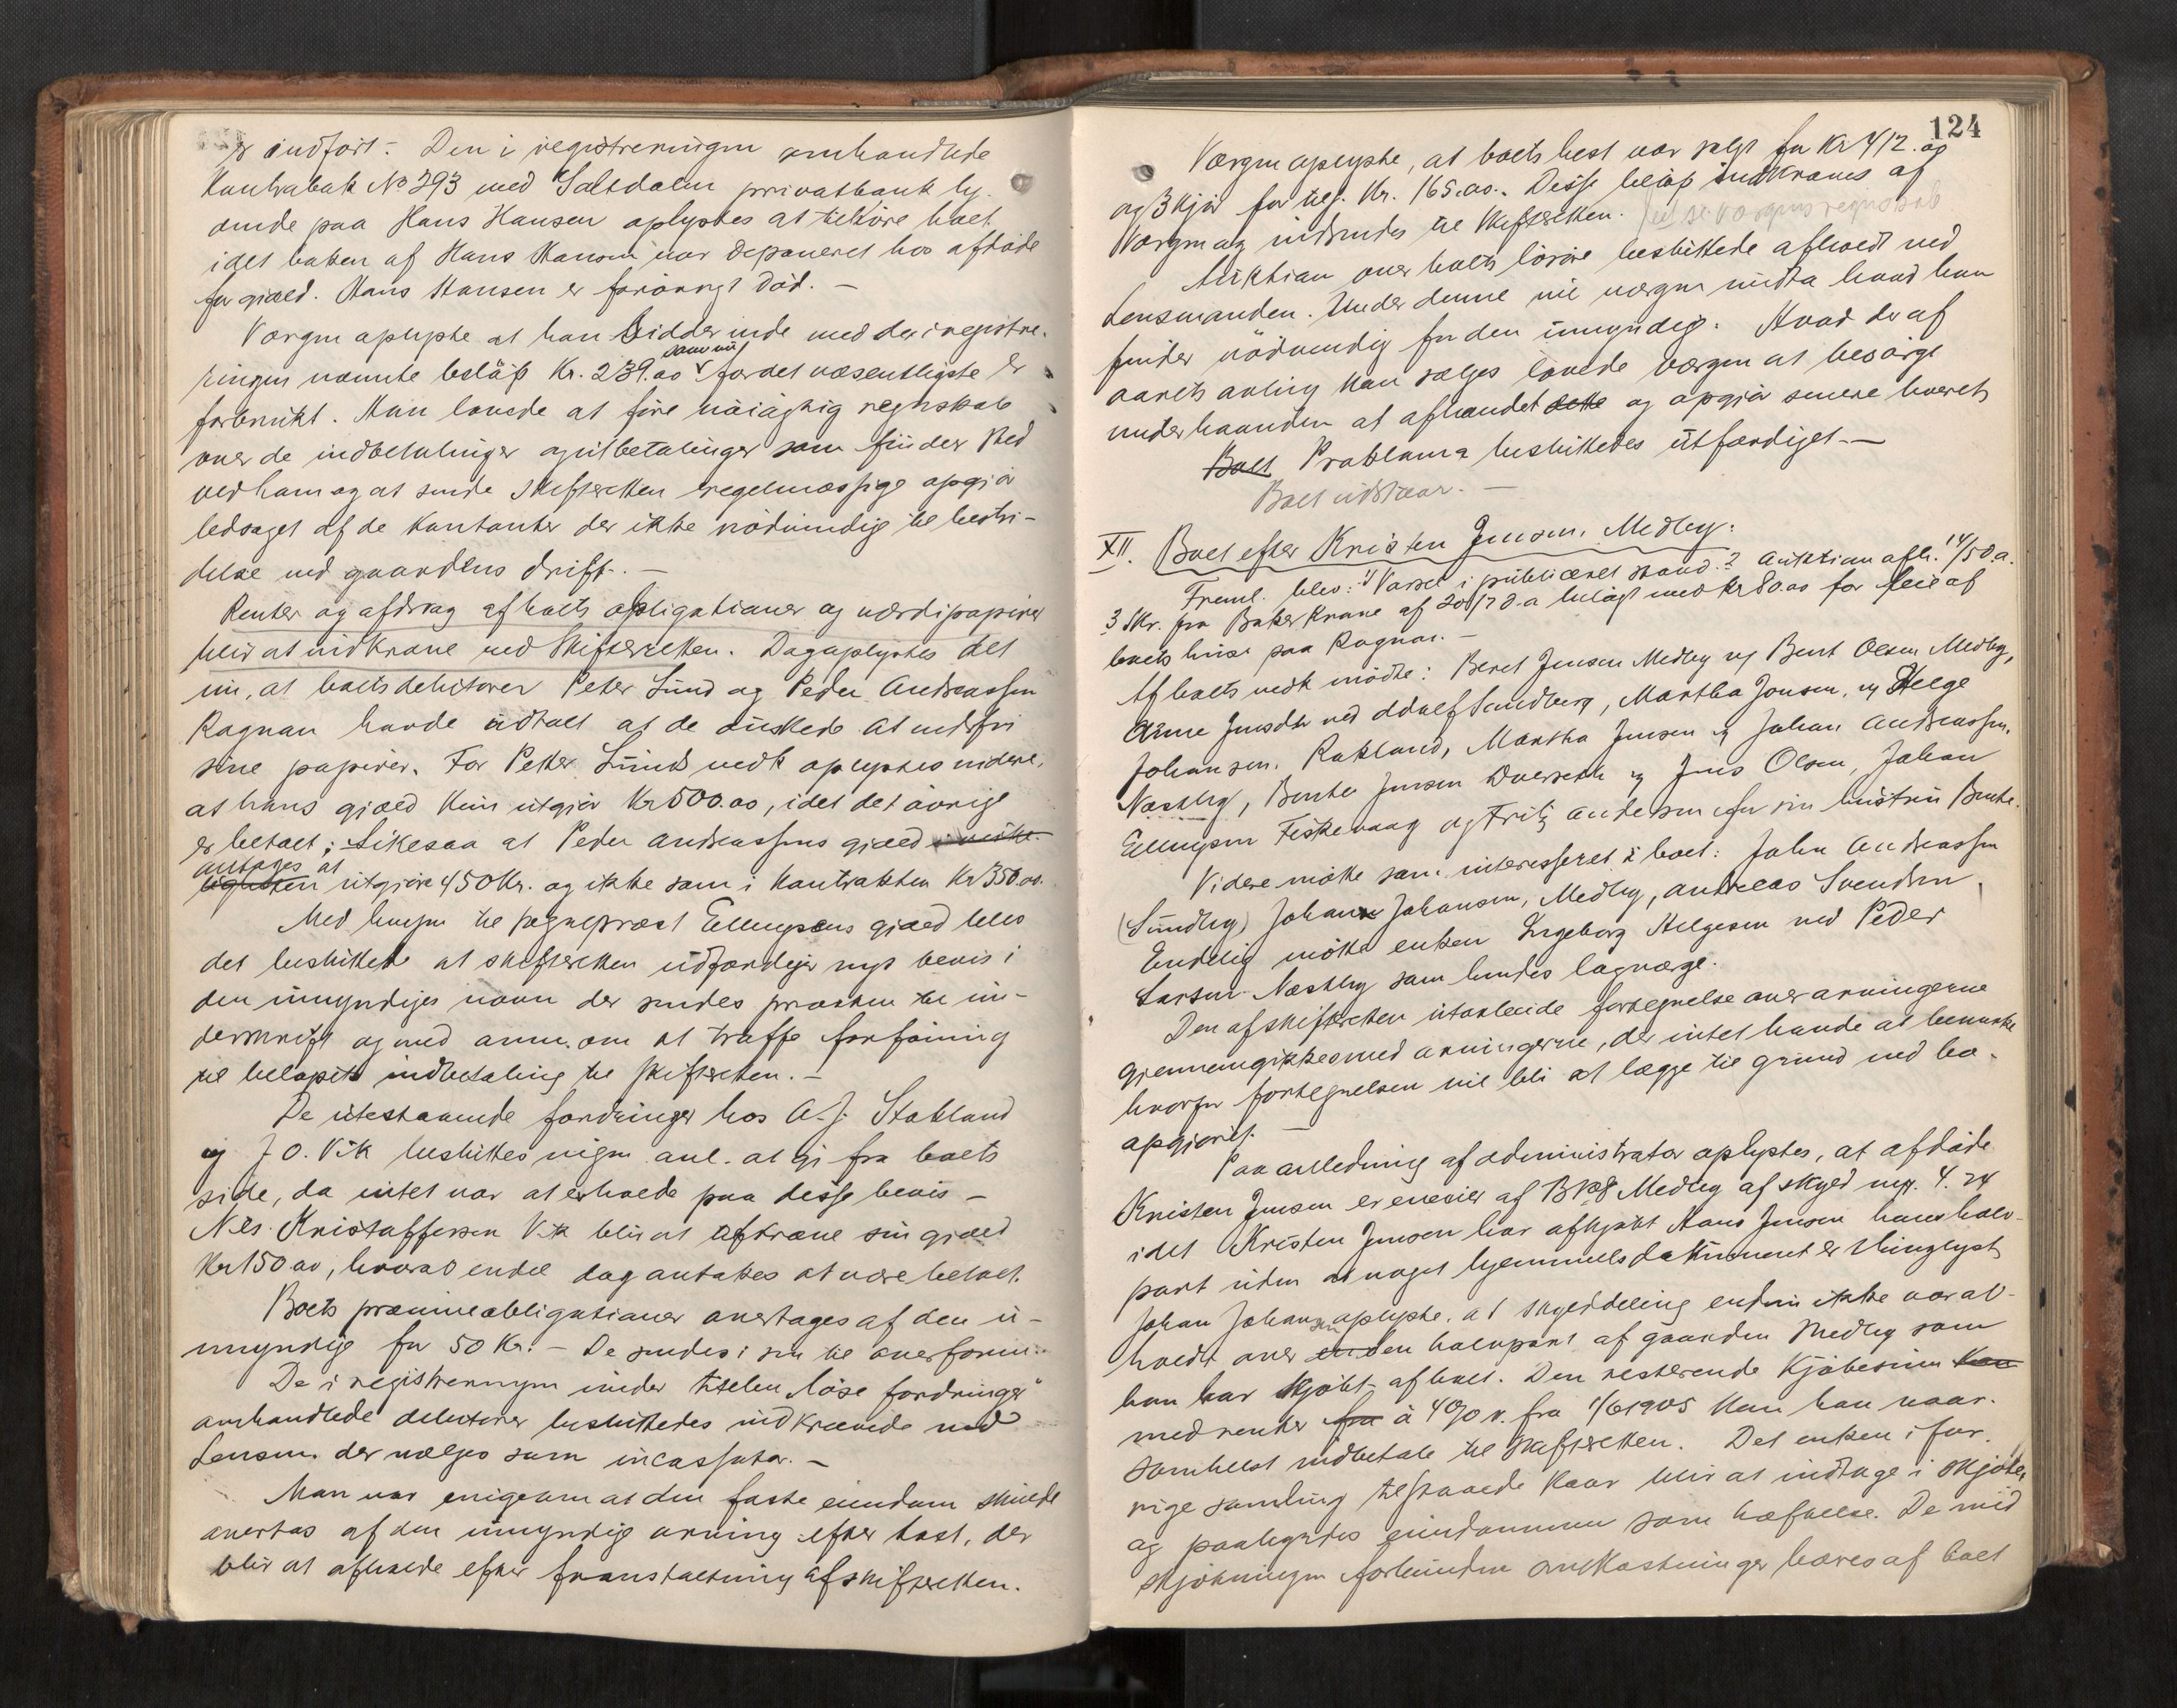 er indfört. – Den i registreringen omhandlede
Kontrabok No 293 med Saltdalen privatbank ly-
dende paa Hans Hansen oplystes at tilhöre boet
idet boken af Hans Hansen var deponeret hos afdöde
for gjæld. Hans Hansen er forövrigt död. –
Værgen oplyste at han sidder inde med det i registre-
ringen nævnte beløp Kr. 239.00 som nu for det væsentligste er
forbrukt. Han lovede at före nöiagtig regnskab
over de indbetalinger og utbetalinger som finder sted
ved ham og at sende skifteretten regelmæssige opgjör
ledsaget af de kontanter der ikke nödvendig til bestri-
delse ved gaardens drift. –
Renter og afdrag af boets obligationer og værdipapirer
blir at indkræve ved Skifteretten. Dog oplystes det
nu, at boets debitorer Peter Lund og Peder Andreassen
Rognan havde udtalt at de önskede at indfri
sine papirer. For Peter Lunds vedk oplystes videre,
at hans gjæld kun utgjör Kr 500.00, idet det övrige
er betalt; Likesaa at Peder Andreassens gjæld
antages at
utgjöre 450 Kr. og ikke som i kontrakten Kr 350.00.
Med hensyn til sogneprest Ellingsens gjæld blev
det besluttet at skifteretten udfærdiger nyt bevis i
den umyndiges navn der sendes presten til un-
derskrift og med anm. om at træffe forföining
til belöpets indbetaling til skifteretten. –
De utestaaende fordringer hos A. J. Stokland
og J. O. Vik besluttes ingen anl. at gi fra boets
side, da intet var at erholde paa disse bevis –
Nils Kristoffersen Vik blir at afkræve sin gjæld
Kr 150.00, hvorav endel dog antakes at være betalt.
Boets præmieobligationer overtages af den u-
myndige for 50 Kr. – De sendes i sin til overform..
De i registreringen under titelen "löse fordringer"
omhandlede debitorer besluttedes indkrævede ved
Lensm. der vælges som incassator. –
Man var enige om at den faste eiendom skulde
overtas af den umyndige arving efter takst, der
blir at afholde efter foranstaltning af skifteretten.
124
Værgen oplyste, at boets hest var solgt for Kr 412. og
og 3 kjör for tils. Kr. 165.00. Disse belöp indkræves af
Værgen og indsendes til skifteretten.
Auktion over boets lösöre besluttede afholdt ved
Lensmanden. Under denne vil værgen undta hvad han
finder nödvendig for den umyndige. Hvad der af
aarets avling kan sælges lovede værgen at besörge
underhaanden at afhændet dette og opgjör senere hverets
Boet Proklama besluttedes utfærdiget. –
Boet udstaar. –
XII. Boet efter Kristen Jensen, Medby.
Freml. blev: 1) Varsel i publiceret stand. 2 Auktion afh. 14/5 d.a.
3 Skr. fra Baker Krane af 20/7 d.a bilagt med Kr 80.00 for leie af
boets hus paa Rognan. –
Af boets vedk mödte: Beret Jensen Medby og Bent Olsen Medby,
Arne Jensen ved Adolf Sundberg, Martha Jonsen, og Helge
Johansen. Rokland, Martha Jensen og Johan Andreassen,
Næstby, Bente Jensen Dverset og Jens Olsen, Johan
Ellingsen Fiskevaag og Fritz Andersen for sin hustru Bente.
Videre mötte som interesseret i boet: John Andreassen
(Sundby) Johan Johansen, Medby, Andreas Svendsen.
Endelig mötte enken Ingeborg Helgesen med Peder
Larsen Næstby som hendes lagværge.
Den af skifteretten utarbeide fortegnelse over arvingerne
gjennemgikkes med arvingerne, der intet havde at bemerke
hvorfor fortegnelsen vil bli at lægge til grund ved bo-
opgjöret. –
Paa anledning af administrator oplystes, at afdöde
Kristen Jensen er eneeier af B No 8 Medby af skyld m. 4.24
idet Kristen Jensen har afkjöbt Hans Jensen hans halv-
part uden at noget hjemmelsdokument er thinglyst
Johan Johansen oplyste, at skylddeling endnu ikke var af-
holdt over den halvpart af gaarden Medby som
han har kjöbt af boet. Den resterende kjöbesum
med renter fra à 4% r. fra 1/6 1905 kan han naar-
somhelst indbetale til skifteretten. Det enken i for-
rige samling tilstaaede kaar blir at indtage i skjöte,
og paaheftes eiendommen som hæftelse. De med
skjötningen forbundne omkostninger bæres af boet